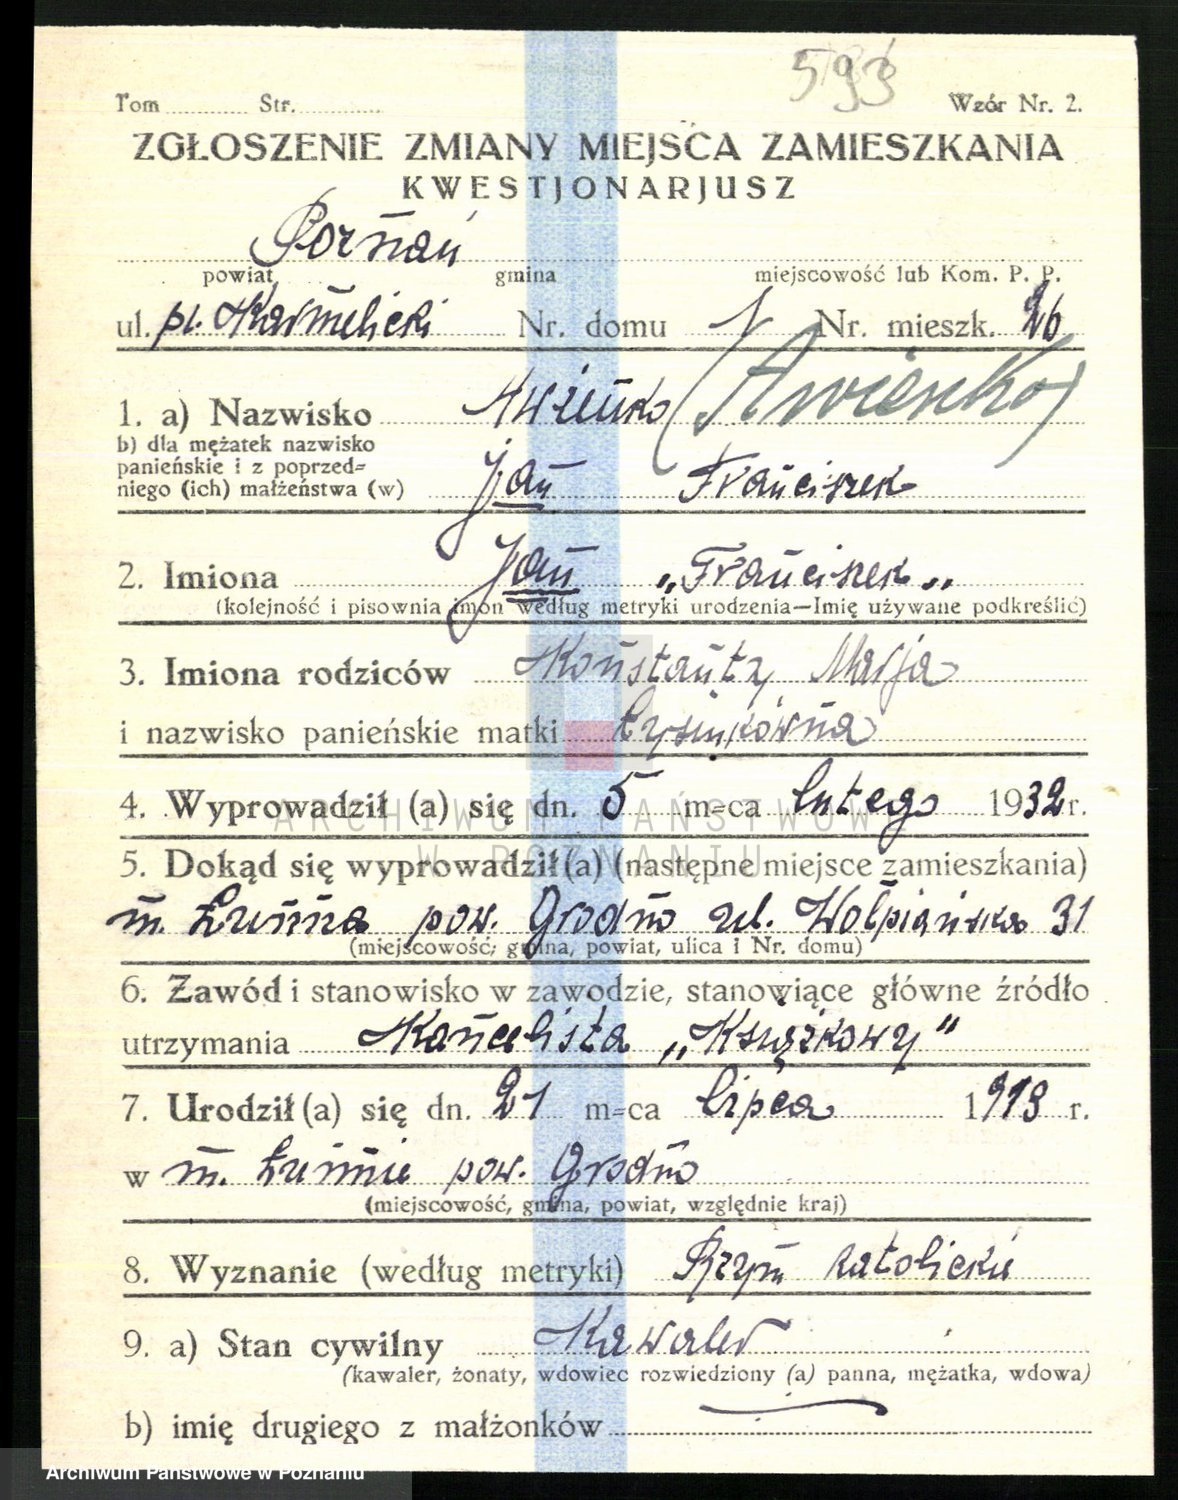 593
Tom ......... Str. .........	Wzór Nr. 2.
ZGŁOSZENIE ZMIANY MIEJSCA ZAMIESZKANIA
KWESTJONARJUSZ
Poznań
powiat gmina miejscowość lub Kom. P. P.
ul. pl. Karmelicki Nr. domu 1 Nr. mieszk. 26
1. a) Nazwisko Awieńko (Awieńko)
b) dla mężatek nazwisko
panieńskie i z poprzed=
niego (ich) małżeństwa (w) Jan Franciszek
2. Imiona Jan „Franciszek„
(kolejność i pisownia imon według metryki urodzenia—Imię używane podkreślić)
3. Imiona rodziców Konstanty Marja
i nazwisko panieńskie matki Łysinkówna
4. Wyprowadził (a) się dn. 5 m=ca lutego 1932 r.
ARCHIWUM PAŃSTWOW
W POZNANIU
5. Dokąd się wyprowadził (a) (następne miejsce zamieszkania)
m. Łunna pow. Grodno ul. Wołpiańska 31
(miejscowość, gmina, powiat, ulica i Nr. domu)
6. Zawód i stanowisko w zawodzie, stanowiące główne źródło
utrzymania Kancelista „Książkowy"
7. Urodził (a) się dn. 21 m=ca lipca 1913 r.
w m. Łunnie pow. Grodno
(miejscowość, gmina, powiat, względnie kraj)
8. Wyznanie (według metryki) Rzym katolickie
9. a) Stan cywilny Kawaler
(kawaler, żonaty, wdowiec rozwiedziony (a) panna, mężatka, wdowa)
b) imię drugiego z małżonków
Archiwum Państwowe w Poznaniu